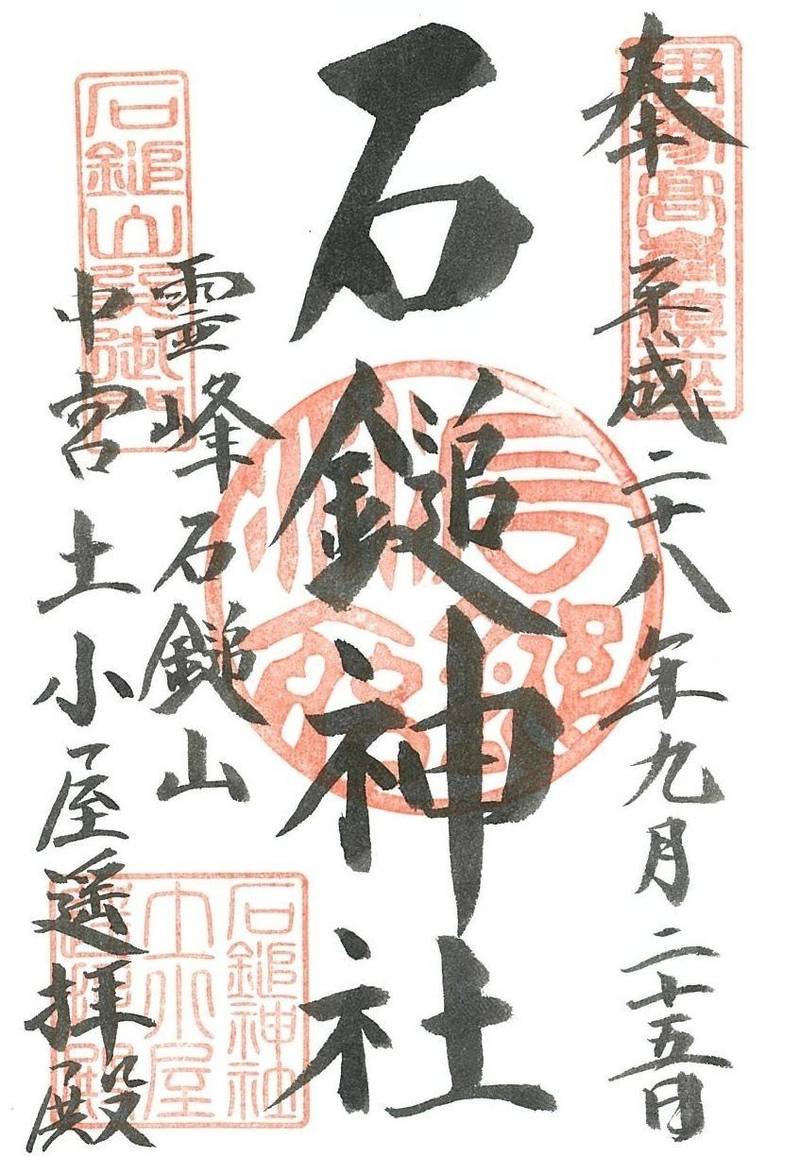 奉
平成二十八年九月二十五日
石鎚神社
霊峰石鎚山
中宮土小屋遥拝殿
石鎚山
石鎚神社
土小屋
遥拝殿